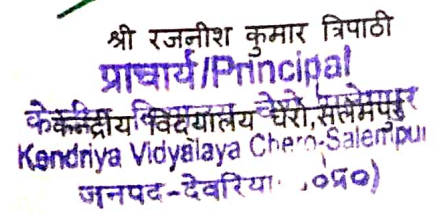 श्री रजनीश कुमार त्रिपाठी
प्राचार्य/Principal
केन्द्रीय विद्यालय चेरो, सलेमपुर
Kendriya Vidyalaya Chero-Salempur
जनपद-देवरिया